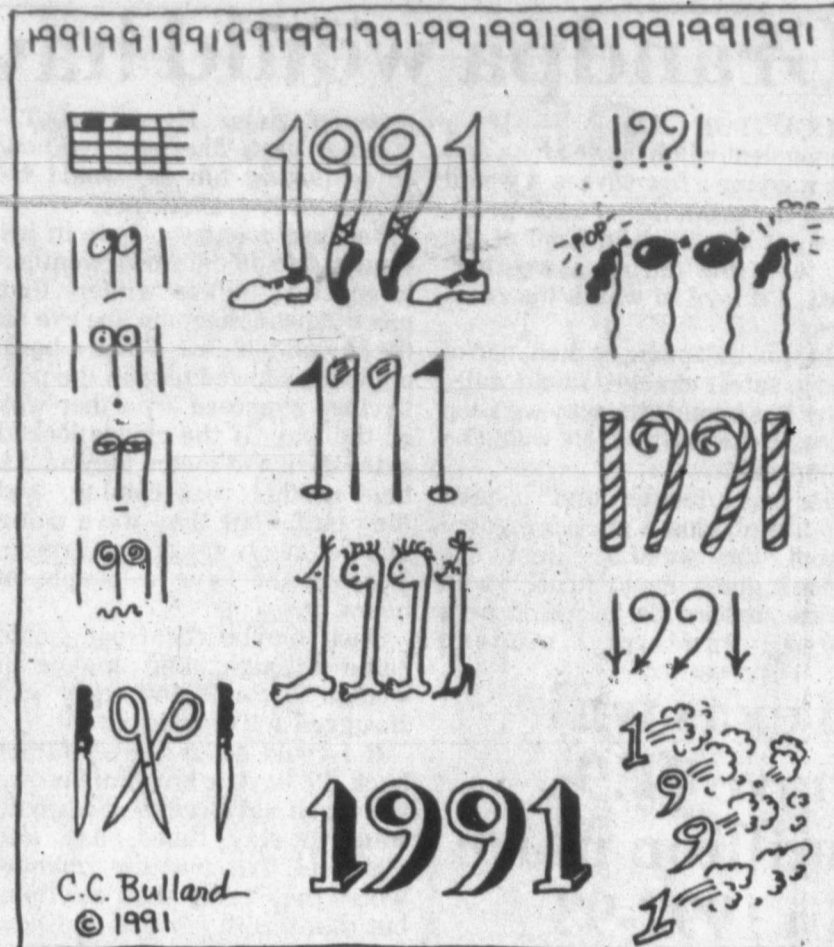 1991 1991 1991 1991 1991 1991 1991 1991 1991 1991
1991
!??!
1991
POP
1991
1991
1991
1991
1991
1991
1991
1991
1991
1991
1991
1
9
9
1
C.C. Bullard
© 1991